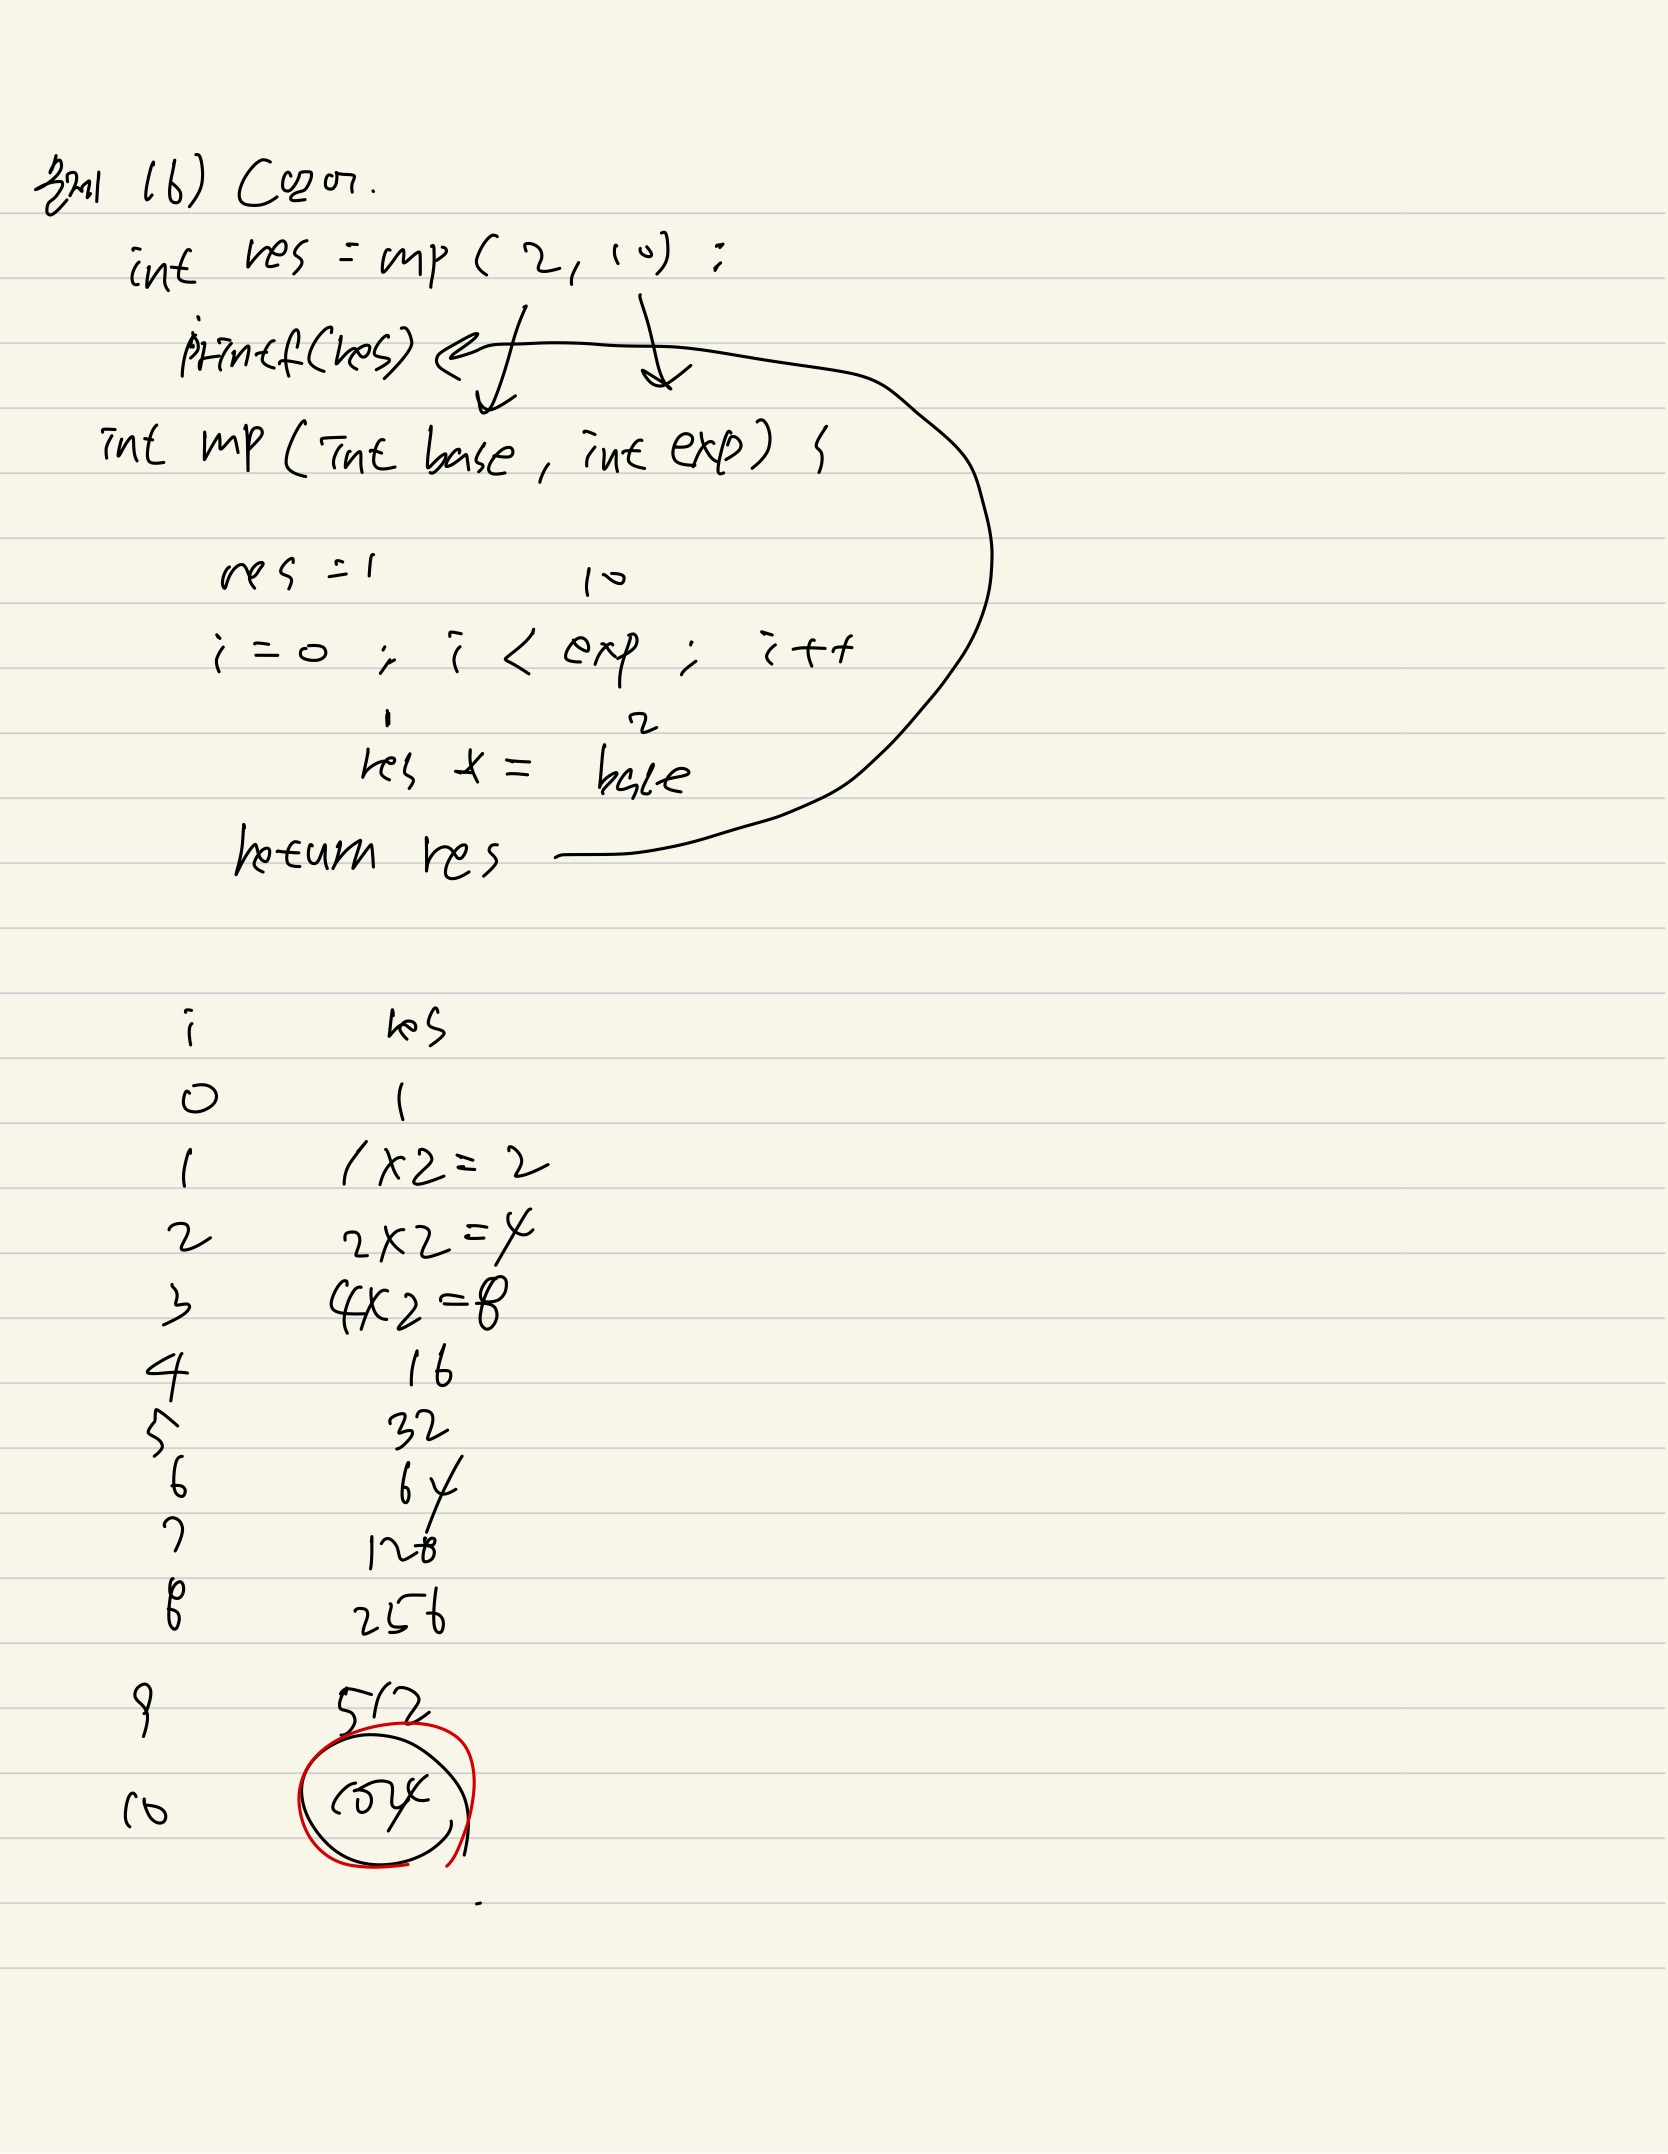 문제 16) C언어.
int res = mp ( 2, 10) ;
printf(res)
int mp (int base, int exp) {
res = 1
10
i = 0 ; i < exp ; i++
1 2
res *= base
return res
i res
0 1
1 1×2=2
2 2×2=4
3 4×2=8
4 16
5 32
6 64
7 128
8 256
9 512
10 1024